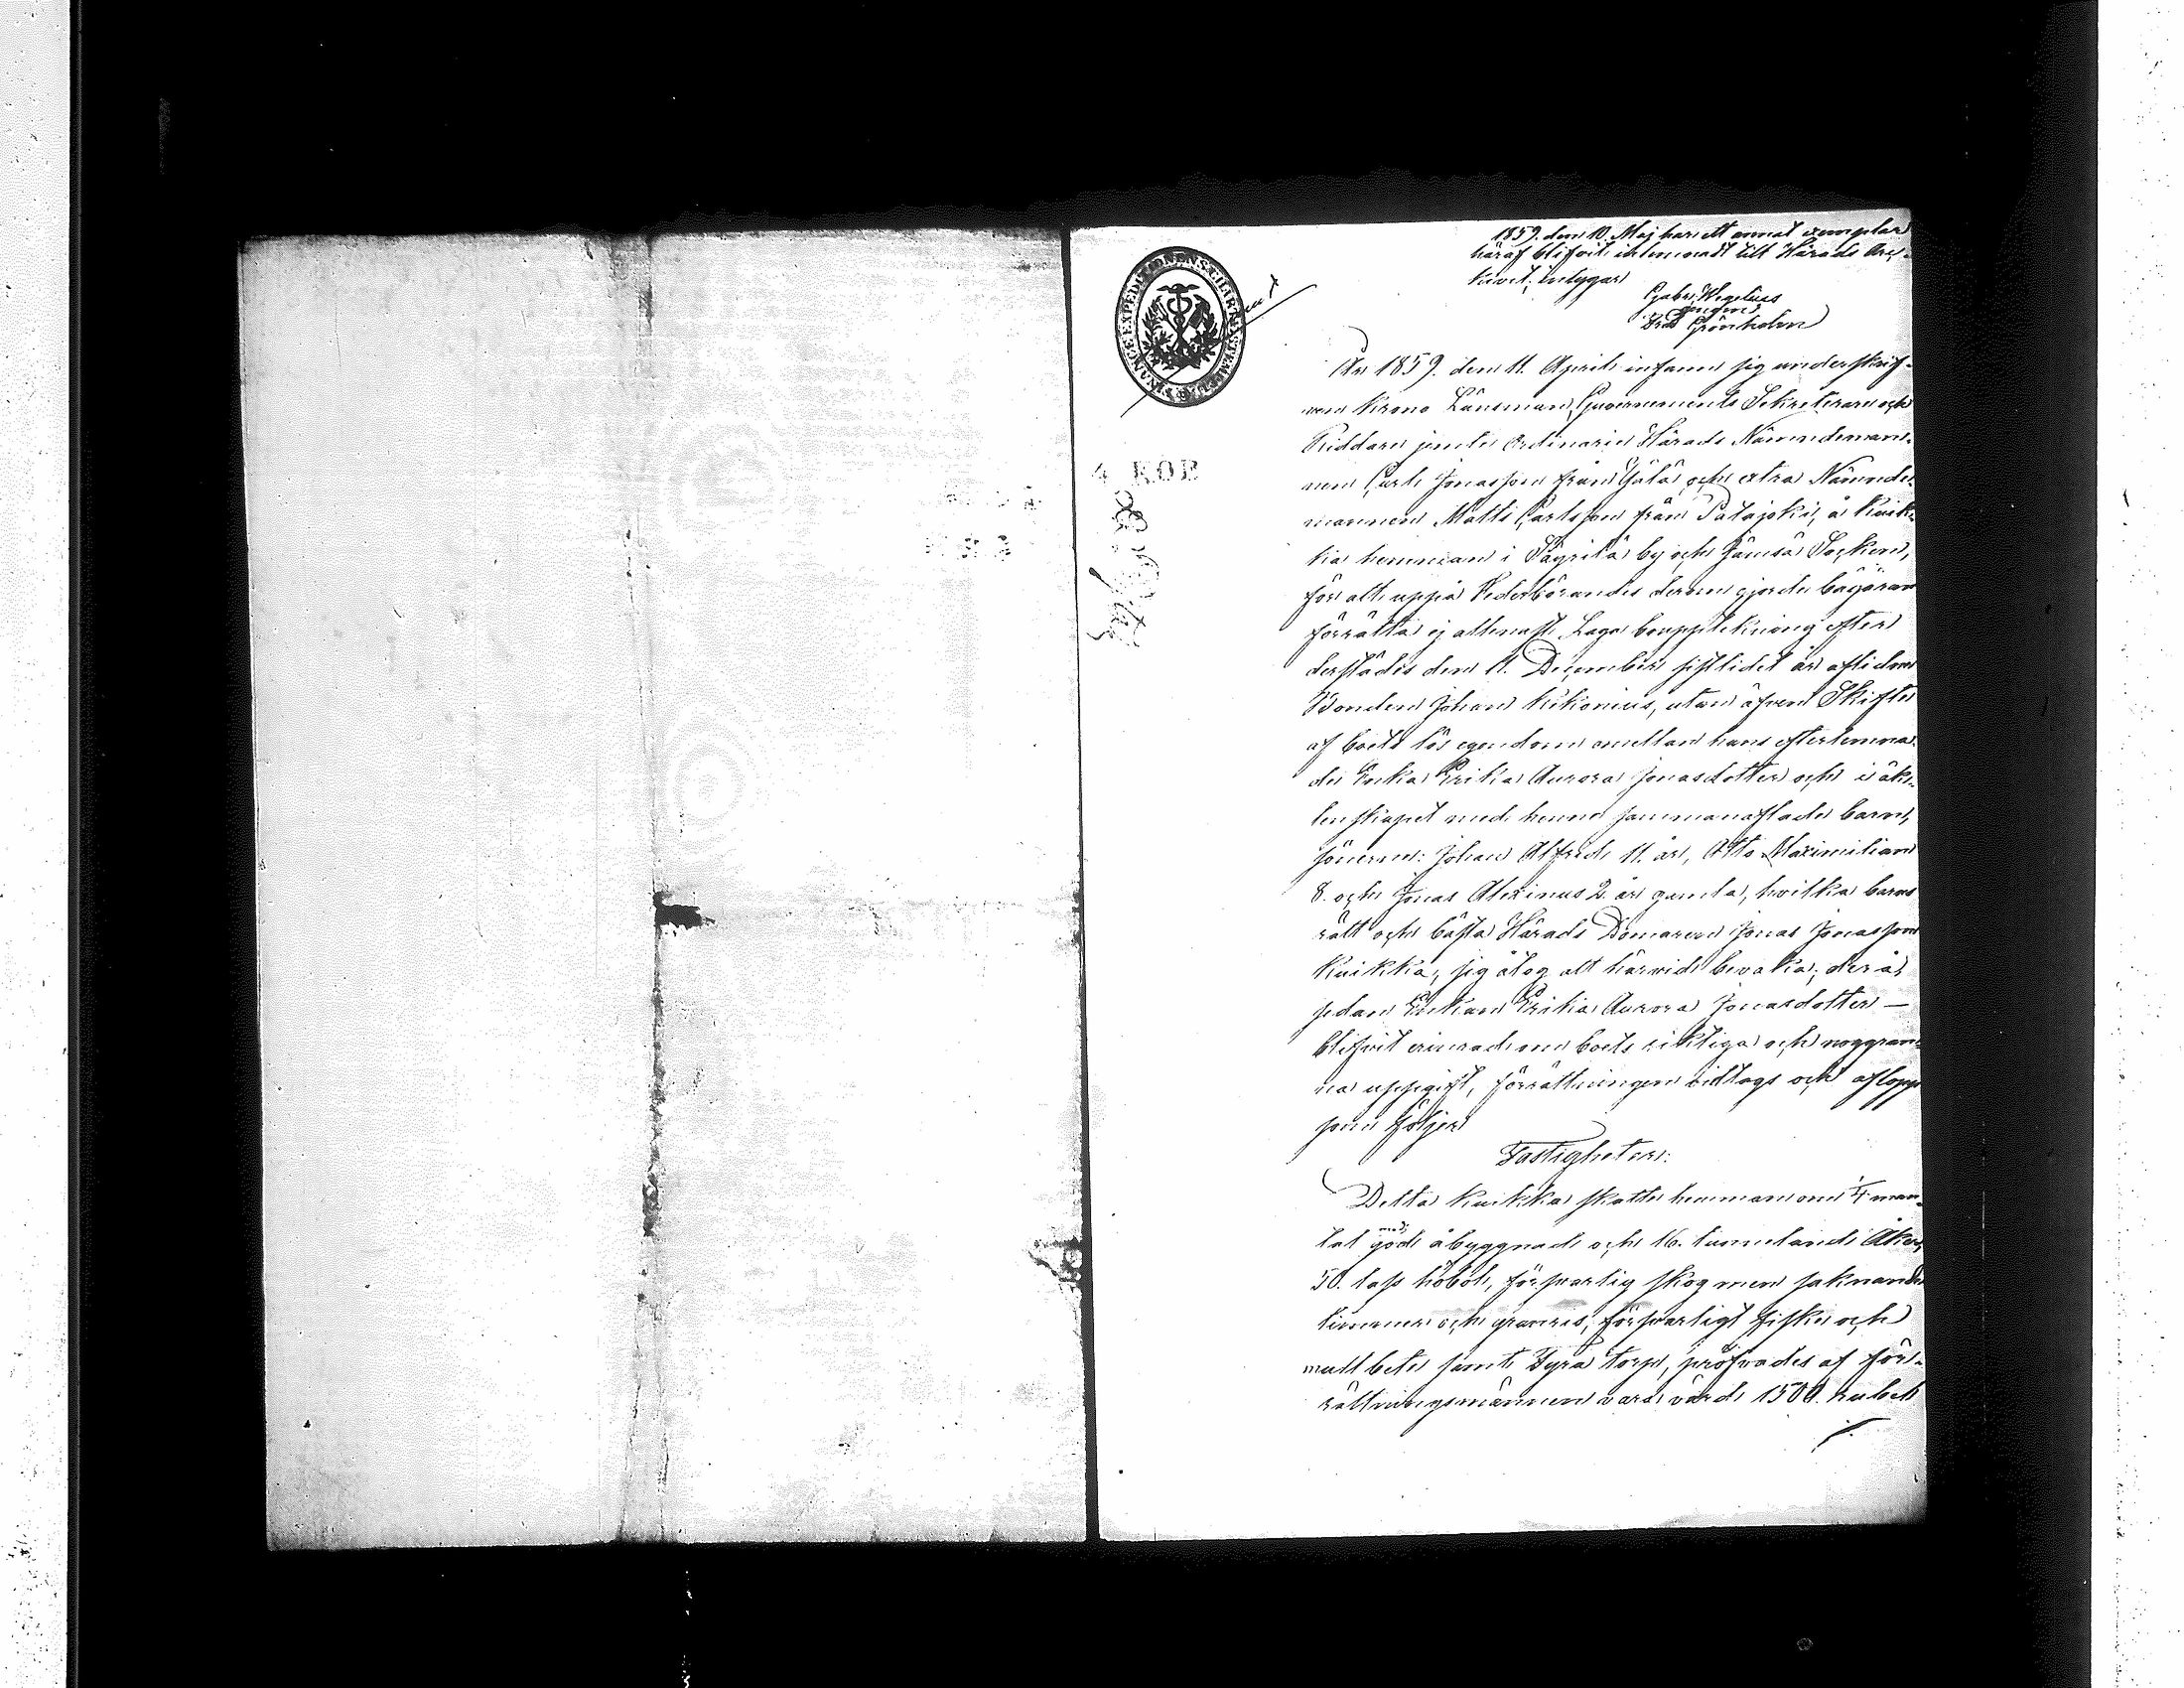 1859. den 10. Maj har ett annat exemplar
häraf blifvit inlemnadt till Härads Arc-
kivet; intygar
Gabr: Wegelius
genom
Fred Grönholm
FINANCE EXPEDITIONENS CHARTÆ STEMPEL
4 KOP
År 1859. den 11. April infann sig underskrif-
ven Krono Länsman, Guvernements Sekreteraren och
Riddaren jemte Ordinarie Härads Nämndeman-
nen Carl Jonasson från Ijälä och extra Nämnde-
mannen Matts Carlsson från Patajoki, å Kuik-
ka hemman i Säyrilä by och Jämsä Socken,
för att uppå Vederbörandes derom gjorde begäran
förrätta ej allenast Laga bouppteckning efter
derstädes den 11. December sistlidet år aflidne
Bonden Johan Kikonius, utan äfven Skifte
af boets lös egendom emellan hans efterlemna-
de Enka Erika Aurora Jonasdotter och i äk-
tenskapet med henne sammanaflade barn,
sönerne: Johan Alfred 11. år, Otto Maximilian
8. och Jonas Alexinus 2. år gamla, hvilka barns
rätt och bästa Härads Domaren Jonas Jonasson
Kuikka, sig åtog att härvid bevaka; der å,
sedan Enkan Erika Aurora Jonasdotter —
blifvit erinrad om boets riktiga och noggran-
na uppgift, förrättningen vidtogs och aflopp
som följer
Fastigheter:
Detta Kuikka skatte hemman om 1/4 man-
tal med god åbyggnad och 16. tunneland Åker,
50. lass höbol, försvarlig skog men saknande
timmer och granris, försvarligt fiske och
mulbete samt Fyra torp, pröfvades af för-
rättningsmännen vara värdt 1500. rubel